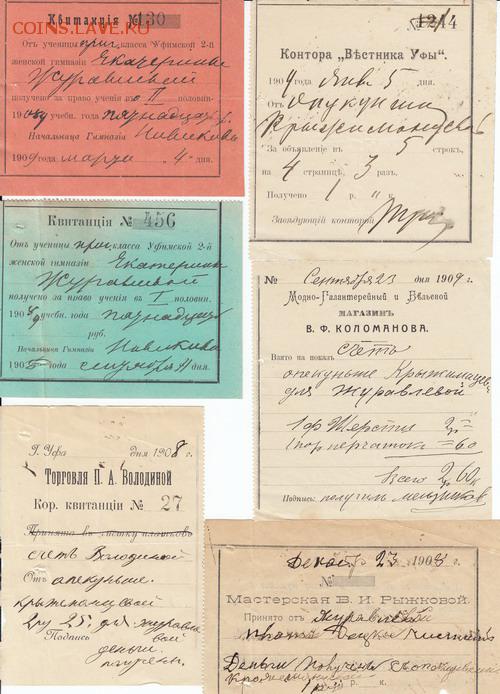 СОИНС.LAVE.RU
Квитанція № 130
Отъ ученицы приг. класса Уфимской 2-й
женской гимназіи Екатерины
Журавлевой
получено за право ученія въ II половин.
учебн. года пятнадцать р.
Начальница Гимназіи Новикова
1909 года марта „4“ дня.
Квитанція № 456
Отъ ученицы приг. класса Уфимской 2-й
женской гимназіи Екатерины
Журавлевой
получено за право ученія въ I половин.
190 учебн. года пятнадцать
руб.
Начальница Гимназіи Новикова
190 сентября дня.
Г. Уфа дня 1908 г.
Торговля П. А. Володиной
Кор. квитанціи № 27
Принято въ
счетъ Володиной
Отъ опекунше
Крыжановской
2 ру 25 для Журавле
вой
Подпись деньги
получены
1214
Контора „Вѣстника Уфы“.
190 года Янв 5 дня.
Отъ Опекунши
За объявленіе въ 5 строкъ,
на 4 страницѣ, 3 разъ.
Получено 1 р. „ к.
Завѣдующій конторой
№ Сентября 23 дня 1909 г.
Модно-Галантерейный и Бѣльевой
МАГАЗИНЪ
В. Ф. КОЛОМАНОВА.
Счетъ
Взято на показъ
опекунше
для Журавлевой
1 ф Шерсти 2 =
1 пор перчатокъ = 60
Всего 2 60 к
Подпись: получилъ
Декаб 23 1908 г.
№
Мастерская В. И. Рыжковой.
Принято отъ Журавлевой
Деньги получены
р. к.